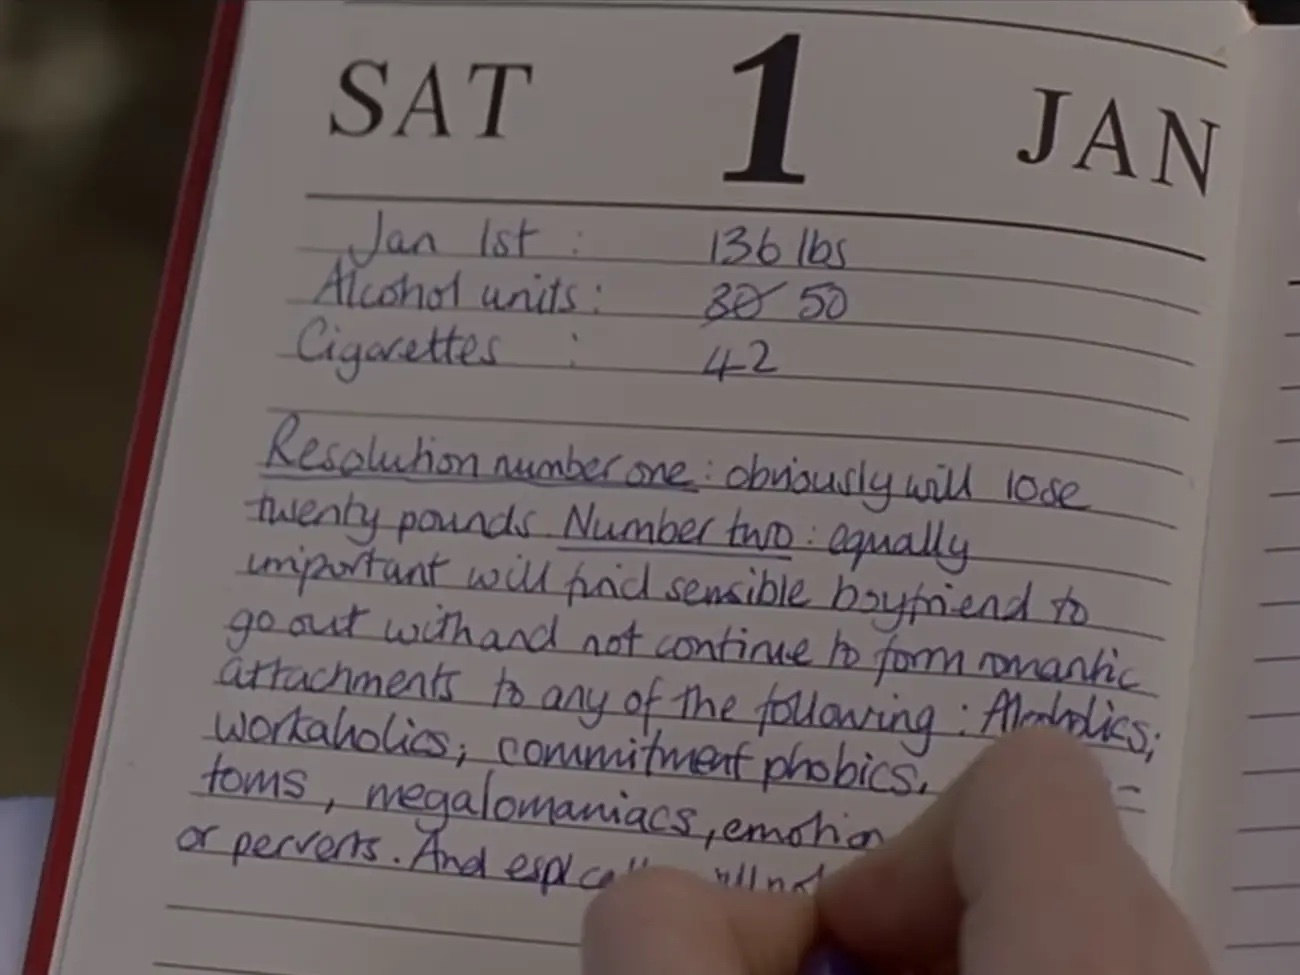 SAT 1 JAN
Jan 1st : 136 lbs
Alcohol units : 30 50
Cigarettes : 42
Resolution number one : obviously will lose
twenty pounds. Number two : equally
important will find sensible boyfriend to
go out with and not continue to form romantic
attachments to any of the following : Alcoholics,
workaholics, commitment phobics,
toms, megalomaniacs,
or perverts. And will not